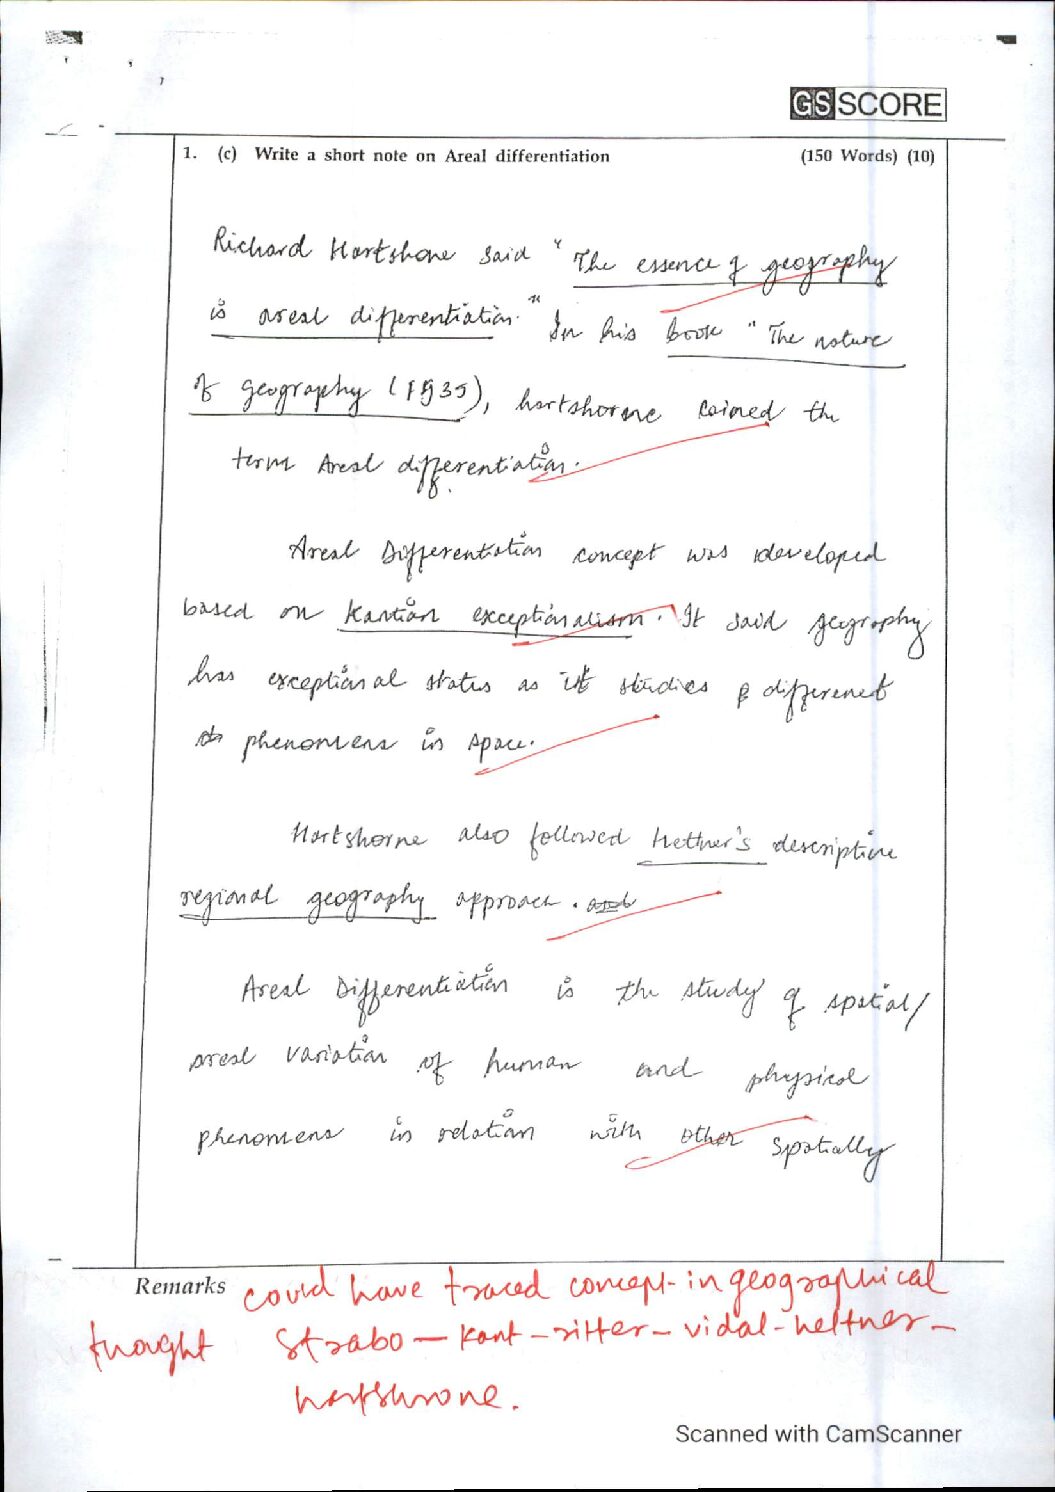 GS SCORE
1. (c) Write a short note on Areal differentiation (150 Words) (10)
Richard Hartshone said "The essence of geography
is areal differentiation." In his book "The nature
of geography (1935), hartshorne coined the
term Areal differentiation.
Areal Differentiation concept was developed
based on Kantian exceptionalism. It said geography
has exceptional status as it studies different
phenomena in space.
Hartshorne also followed Hettner's descriptive
regional geography approach.
Areal Differentiation is the study of spatial/
areal variation of human and physical
phenomena in relation with other spatially
Remarks could have traced concept in geographical
thought Strabo - Kant - ritter - vidal - hettner -
hartshrone.
Scanned with CamScanner